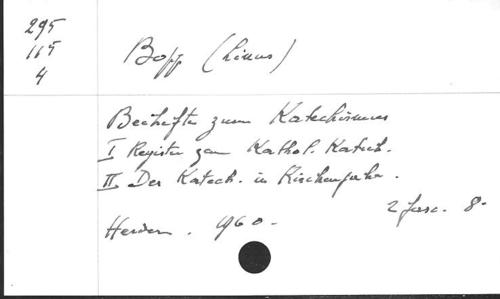 295
115
4
Bopp (Linus)
Beihefte zum Katechismus
I Register zum Kathol. Katech.
II. Der Katech. in Kirchenjahr.
2 fasc. 8°
Herder. 1960.